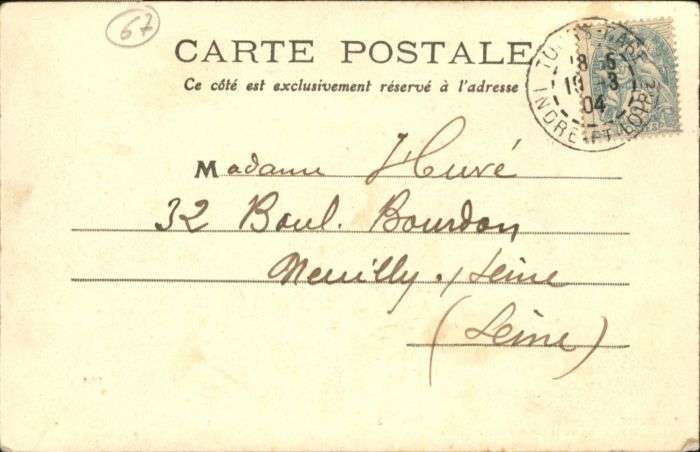 67
CARTE POSTALE
Ce côté est exclusivement réservé à l'adresse
Madame Huré
32 Boul. Bourdon
Neuilly s/Seine
(Seine)
TOURS-GARE
18 -5
19 -3
04
INDRE-ET-LOIRE